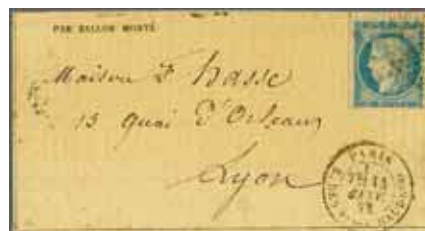 PAR BALLON MONTÉ
Maison F. Hasse
13 quai d'Orléans
Lyon
PARIS